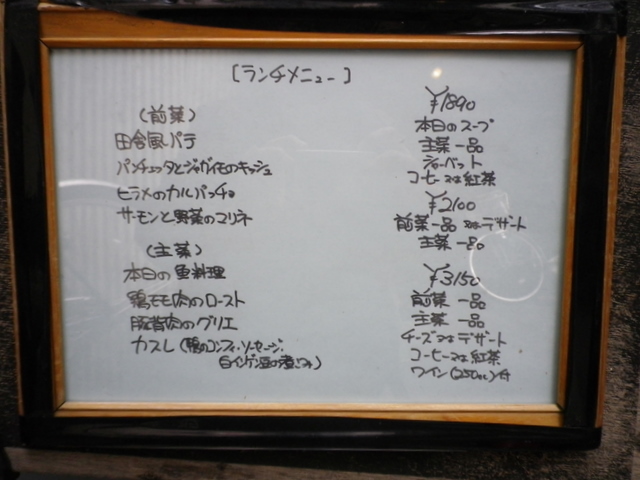 ［ランチメニュー］
（前菜）
田舎風パテ
パンチェッタとジャガイモのキッシュ
ヒラメのカルパッチョ
サーモンと野菜のマリネ
（主菜）
本日の魚料理
鴨モモ肉のロースト
豚背肉のグリエ
カスレ（鴨のコンフィ・ソーセージ・
白インゲン豆の煮こみ）
¥1890
本日のスープ
主菜一品
シャーベット
コーヒー又は紅茶
¥2100
前菜一品 又はデザート
主菜一品
¥3150
前菜一品
主菜一品
チーズ又はデザート
コーヒー又は紅茶
ワイン（250cc）付